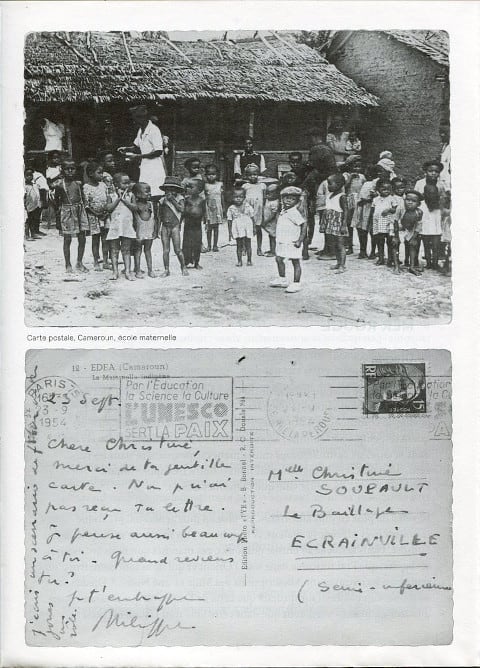 Carte postale, Cameroun, école maternelle
12 - EDEA (Cameroun)
La Maternelle Indigène
PARIS
3-9
1954
Par l'Education
la Science la Culture
L'UNESCO
SERT LA PAIX
Par l'Education
la Sc
L'
S
RF
5
23 Sept.
Chère Christine,
merci de ta gentille
carte. Non je n'ai
pas reçu ta lettre.
Je pense aussi beaucoup
à toi. Quand reviens
tu?
je t'embrasse
Philippe
REPRODUCTION INTERDITE
Melle Christine
SOUPAULT
Le Baillage
ECRAINVILLE
(Seine-inférieure